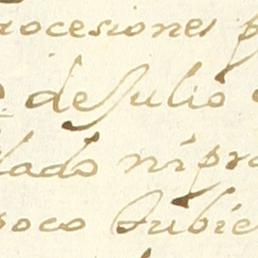 rocesiones p
de Julio
lado ni pro
poco hubie